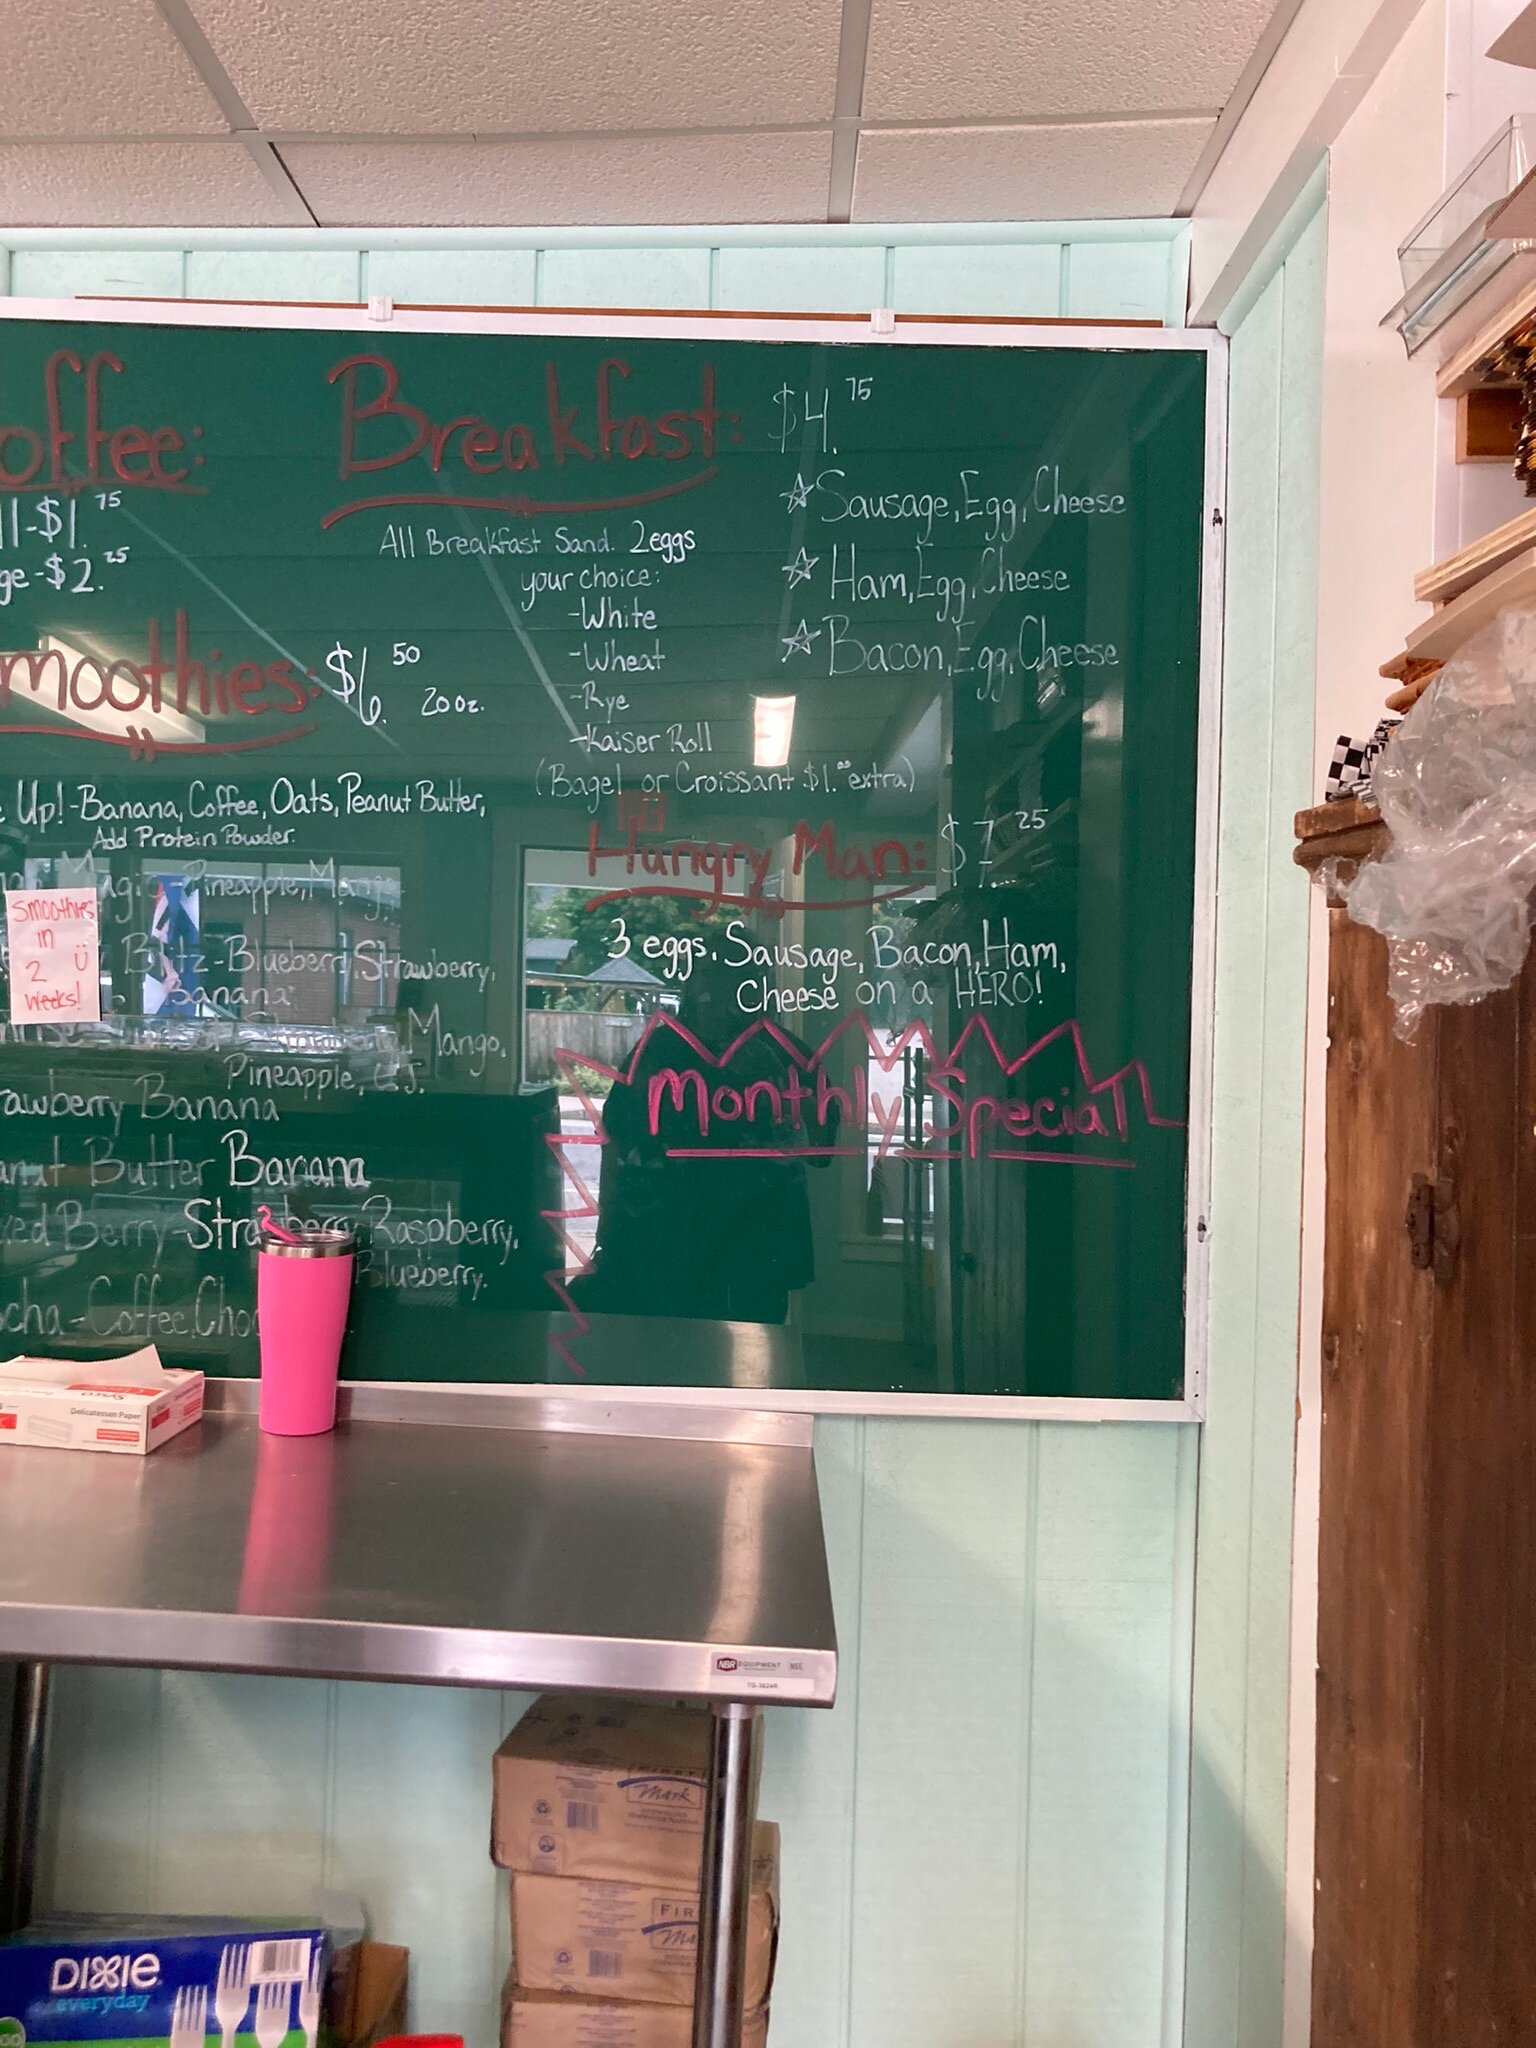 offee:
ll-$1.75
ge-$2.25
moothies: $6.50
20oz.
e Up!-Banana, Coffee, Oats, Peanut Butter,
Add Protein Powder.
Magic-Pineapple, Mango,
Blitz-Blueberry, Strawberry,
Banana.
Strawberry, Mango,
Pineapple, O.J.
rawberry Banana
anut Butter Banana
xed Berry-Strawberry, Raspberry,
Blueberry.
ocha-Coffee, Choc
Smoothies
in
2 Ü
weeks!
Breakfast: $4.75
All Breakfast Sand. 2eggs
your choice:
-White
-Wheat
-Rye
-Kaiser Roll
(Bagel or Croissant $1.00 extra)
☆Sausage, Egg, Cheese
☆Ham, Egg, Cheese
☆Bacon, Egg, Cheese
Hungry Man: $7.25
3 eggs, Sausage, Bacon, Ham,
Cheese on a HERO!
Monthly Special
Sysco
Delicatessen Paper
NBR EQUIPMENT NSE
TG-3624R
FIRST
Mark
FIR
Ma
DIXIE
everyday